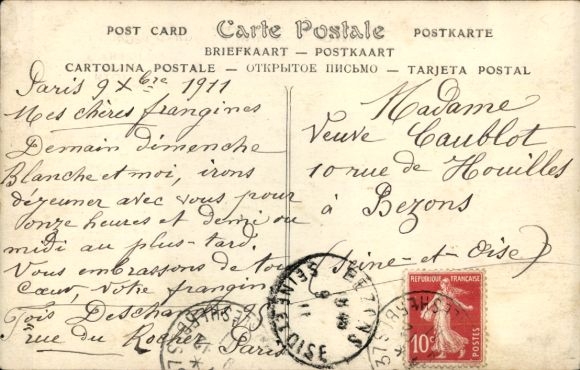 POST CARD Carte Postale POSTKARTE
BRIEFKAART — POSTKAART
CARTOLINA POSTALE — ОТКРЫТОЕ ПИСЬМО — TARJETA POSTAL
Paris 9 Xbre 1911
Mes chères frangines
Demain dimenche
Blanche et moi, irons
déjeuner avec vous pour
onze heures et demi ou
midi au plus-tard.
Vous embrassons de tou
Cœur, Votre frangin
7 rue du Rocher Paris
Madame
Veuve Caublot
10 rue de Houilles
à Bezons
(Seine-et-Oise)
BEZONS
SEINE ET OISE
RÉPUBLIQUE FRANÇAISE
10c
POSTES